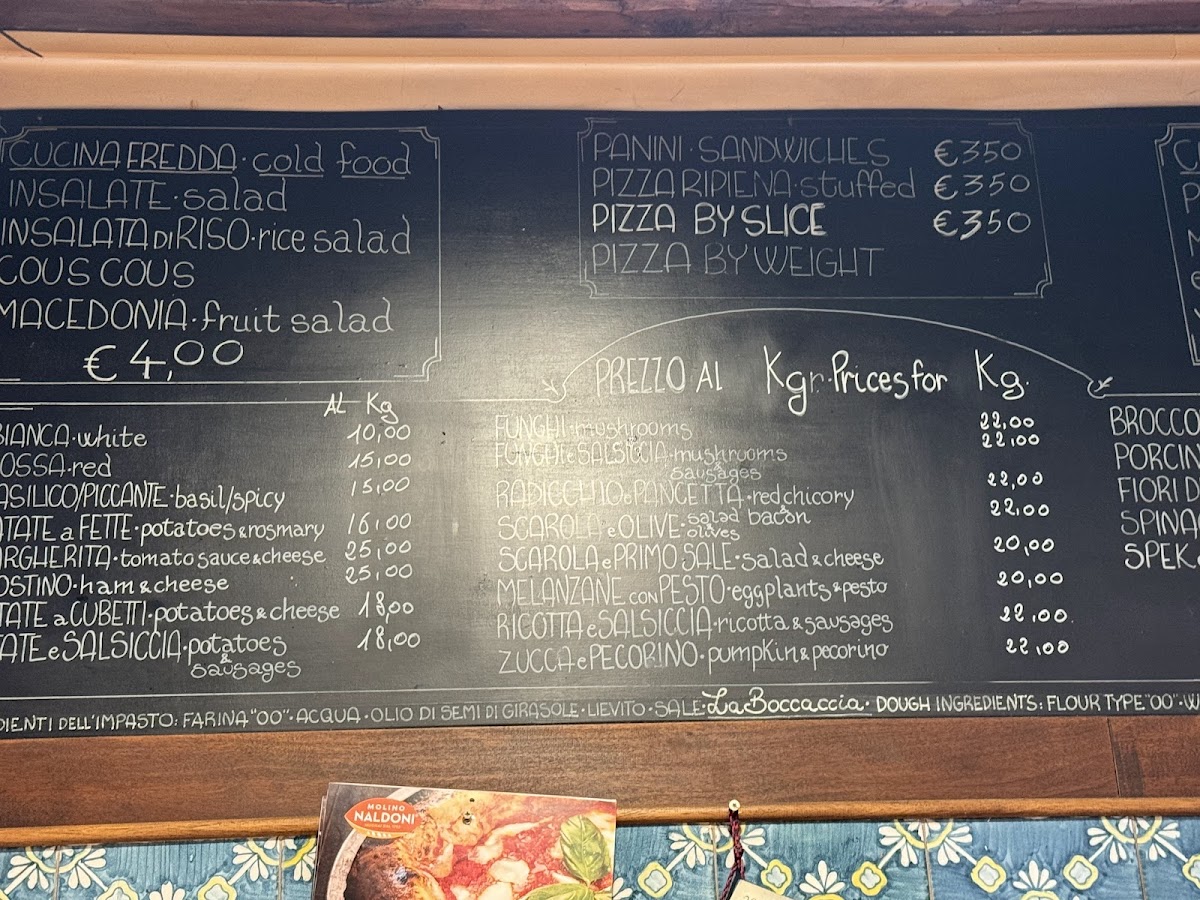 CUCINA FREDDA · cold food
INSALATE · salad
INSALATA DI RISO · rice salad
COUS COUS
MACEDONIA · fruit salad
€ 4,00
PANINI · SANDWICHES €350
PIZZA RIPIENA · stuffed €350
PIZZA BY SLICE €350
PIZZA BY WEIGHT
PREZZO AL Kgr. Prices for Kg.
AL Kg
BIANCA · white 10,00
OSSA · red 15,00
ASILICO/PICCANTE · basil/spicy 15,00
TATE a FETTE · potatoes & rosmary 16,00
ARGHERITA · tomato sauce & cheese 25,00
OSTINO · ham & cheese 25,00
TATE a CUBETTI · potatoes & cheese 18,00
TATE e SALSICCIA · potatoes & sausages 18,00
FUNGHI · mushrooms 22,00
FUNGHI e SALSICCIA · mushrooms & sausages 22,00
RADICCHIO e PANCETTA · red chicory & bacon 22,00
SCAROLA e OLIVE · salad & olives 22,00
SCAROLA e PRIMO SALE · salad & cheese 20,00
MELANZANE CON PESTO · eggplants & pesto 20,00
RICOTTA e SALSICCIA · ricotta & sausages 22,00
ZUCCA e PECORINO · pumpkin & pecorino 22,00
BROCCO
PORCIN
FIORI D
SPINA
SPEK
DIENTI DELL'IMPASTO: FARINA "00" · ACQUA · OLIO DI SEMI DI GIRASOLE · LIEVITO · SALE · La Boccaccia · DOUGH INGREDIENTS: FLOUR TYPE "00" · W
MOLINO
NALDONI